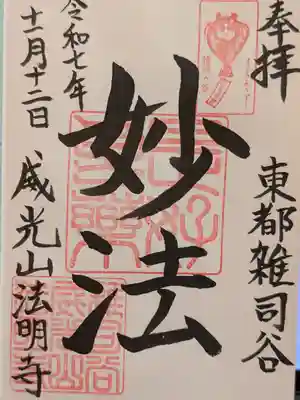 奉拝
東都雑司谷
妙法
令和七年
十一月十二日
威光山法明寺